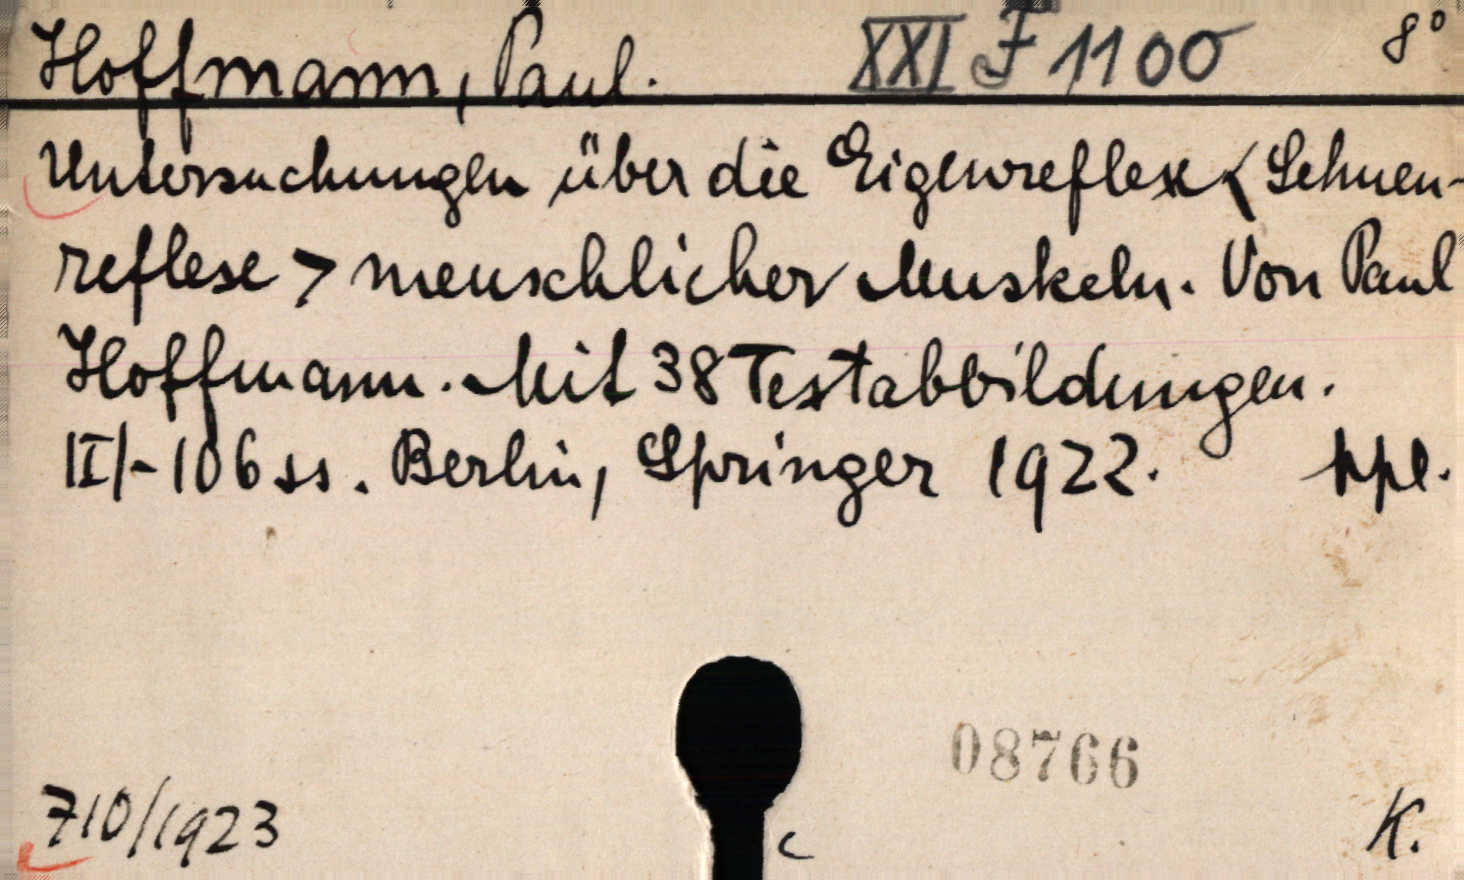 Hoffmann, Paul. XXI F 1100 8°
Untersuchungen über die Eigenreflexe < Sehnen-
reflexe > menschlicher Muskeln. Von Paul
Hoffmann. Mit 38 Textabbildungen.
II/-106 ss. Berlin, Springer 1922. kpl.
08766
710/1923 c K.